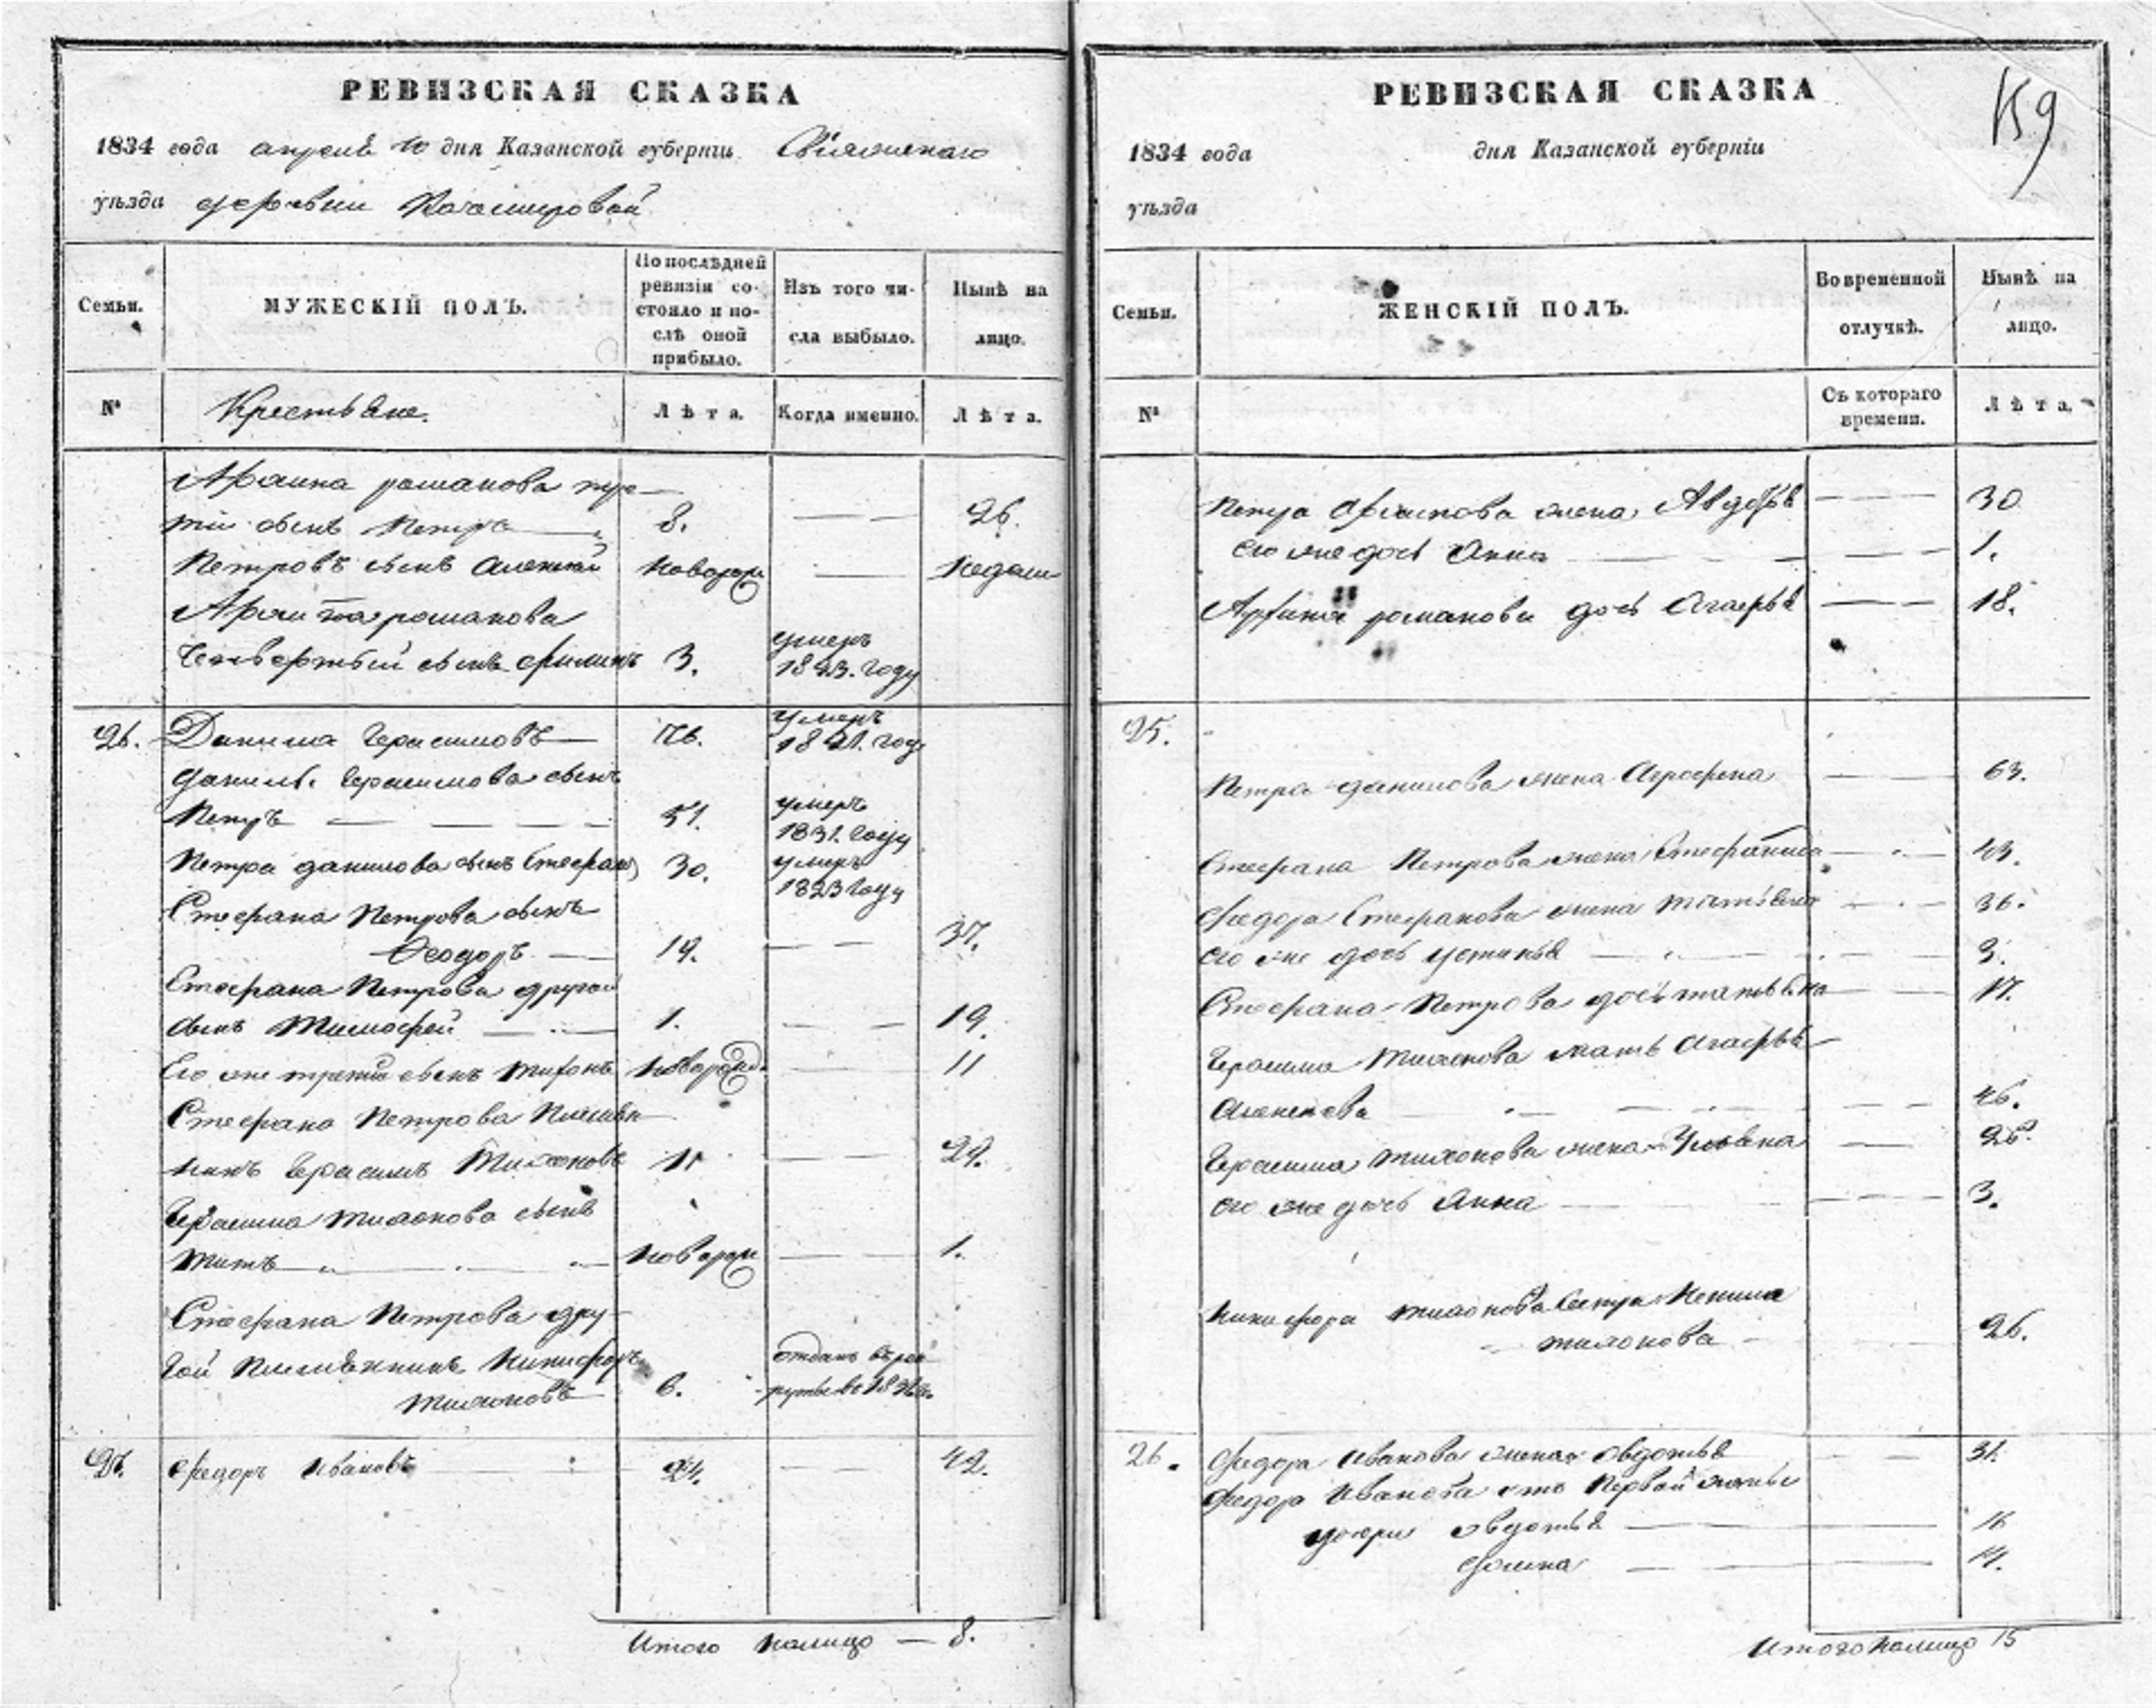 РЕВИЗСКАЯ СКАЗКА
1834 года апреля 10 дня Казанской губернiи Свiяжскаго
уѣзда деревни
Семьи.
МУЖЕСКIЙ ПОЛЪ.
По послѣдней ревизiи со-
стояло и по-
слѣ оной
прибыло.
Изъ того чи-
сла выбыло.
Нынѣ на
лицо.
№
Крестьяне.
Лѣта.
Когда именно.
Лѣта.
романова тре-
тiй сынъ Петръ 8. — — 26.
Петровъ сынъ Алексей новорож — недели
романова
Четвертый сынъ Филипъ 3. умеръ 1823. году
26. Данила Герасимовъ 76. умеръ 1821. году
Данилы Герасимова сынъ
Петръ — — — 51. умеръ 1831. году
Петра Данилова сынъ Стефанъ 30. умеръ 1823 году
Стефана Петрова сынъ
Феодоръ — 19. — — 37.
Стефана Петрова другой
сынъ Тимофей — 1. — — 19.
Его же третiй сынъ новорожд. — 11
Стефана Петрова племян-
никъ Герасимъ Тихоновъ 11 — — 29.
Герасима Тихонова сынъ
Титъ новорож — 1.
Стефана Петрова дру-
гой племянникъ Никифоръ
Тихоновъ 6. отданъ въ рек-
руты во
27. Федоръ Ивановъ 24. — — 42.
Итого налицо — 8.
РЕВИЗСКАЯ СКАЗКА
159
1834 года дня Казанской губернiи
уѣзда
Семьи.
ЖЕНСКIЙ ПОЛЪ.
Во временной
отлучкѣ.
Нынѣ на
лицо.
№
Съ котораго
времени.
Лѣта.
Петра жена — — 30
его же дочь Анна — — 1.
романова дочь Агафья — — 18.
25.
Петра Данилова жена Агрофена — — 63.
Стефана Петрова жена — 43.
Федора Стефанова жена — 36.
его же дочь Устинья — 3.
Стефана Петрова дочь Татьяна — 17.
Герасима Тихонова мать Агафья
Алексеева — — 46.
Герасима Тихонова жена Ульяна — 26.
его же дочь Анна — — 3.
Никифора Тихонова сестра
Тихонова 26.
26. Федора Иванова жена Овдотья — — 31.
Федора Иванова отъ первой жены
дочери Овдотья — 16
14.
Итого налицо 15